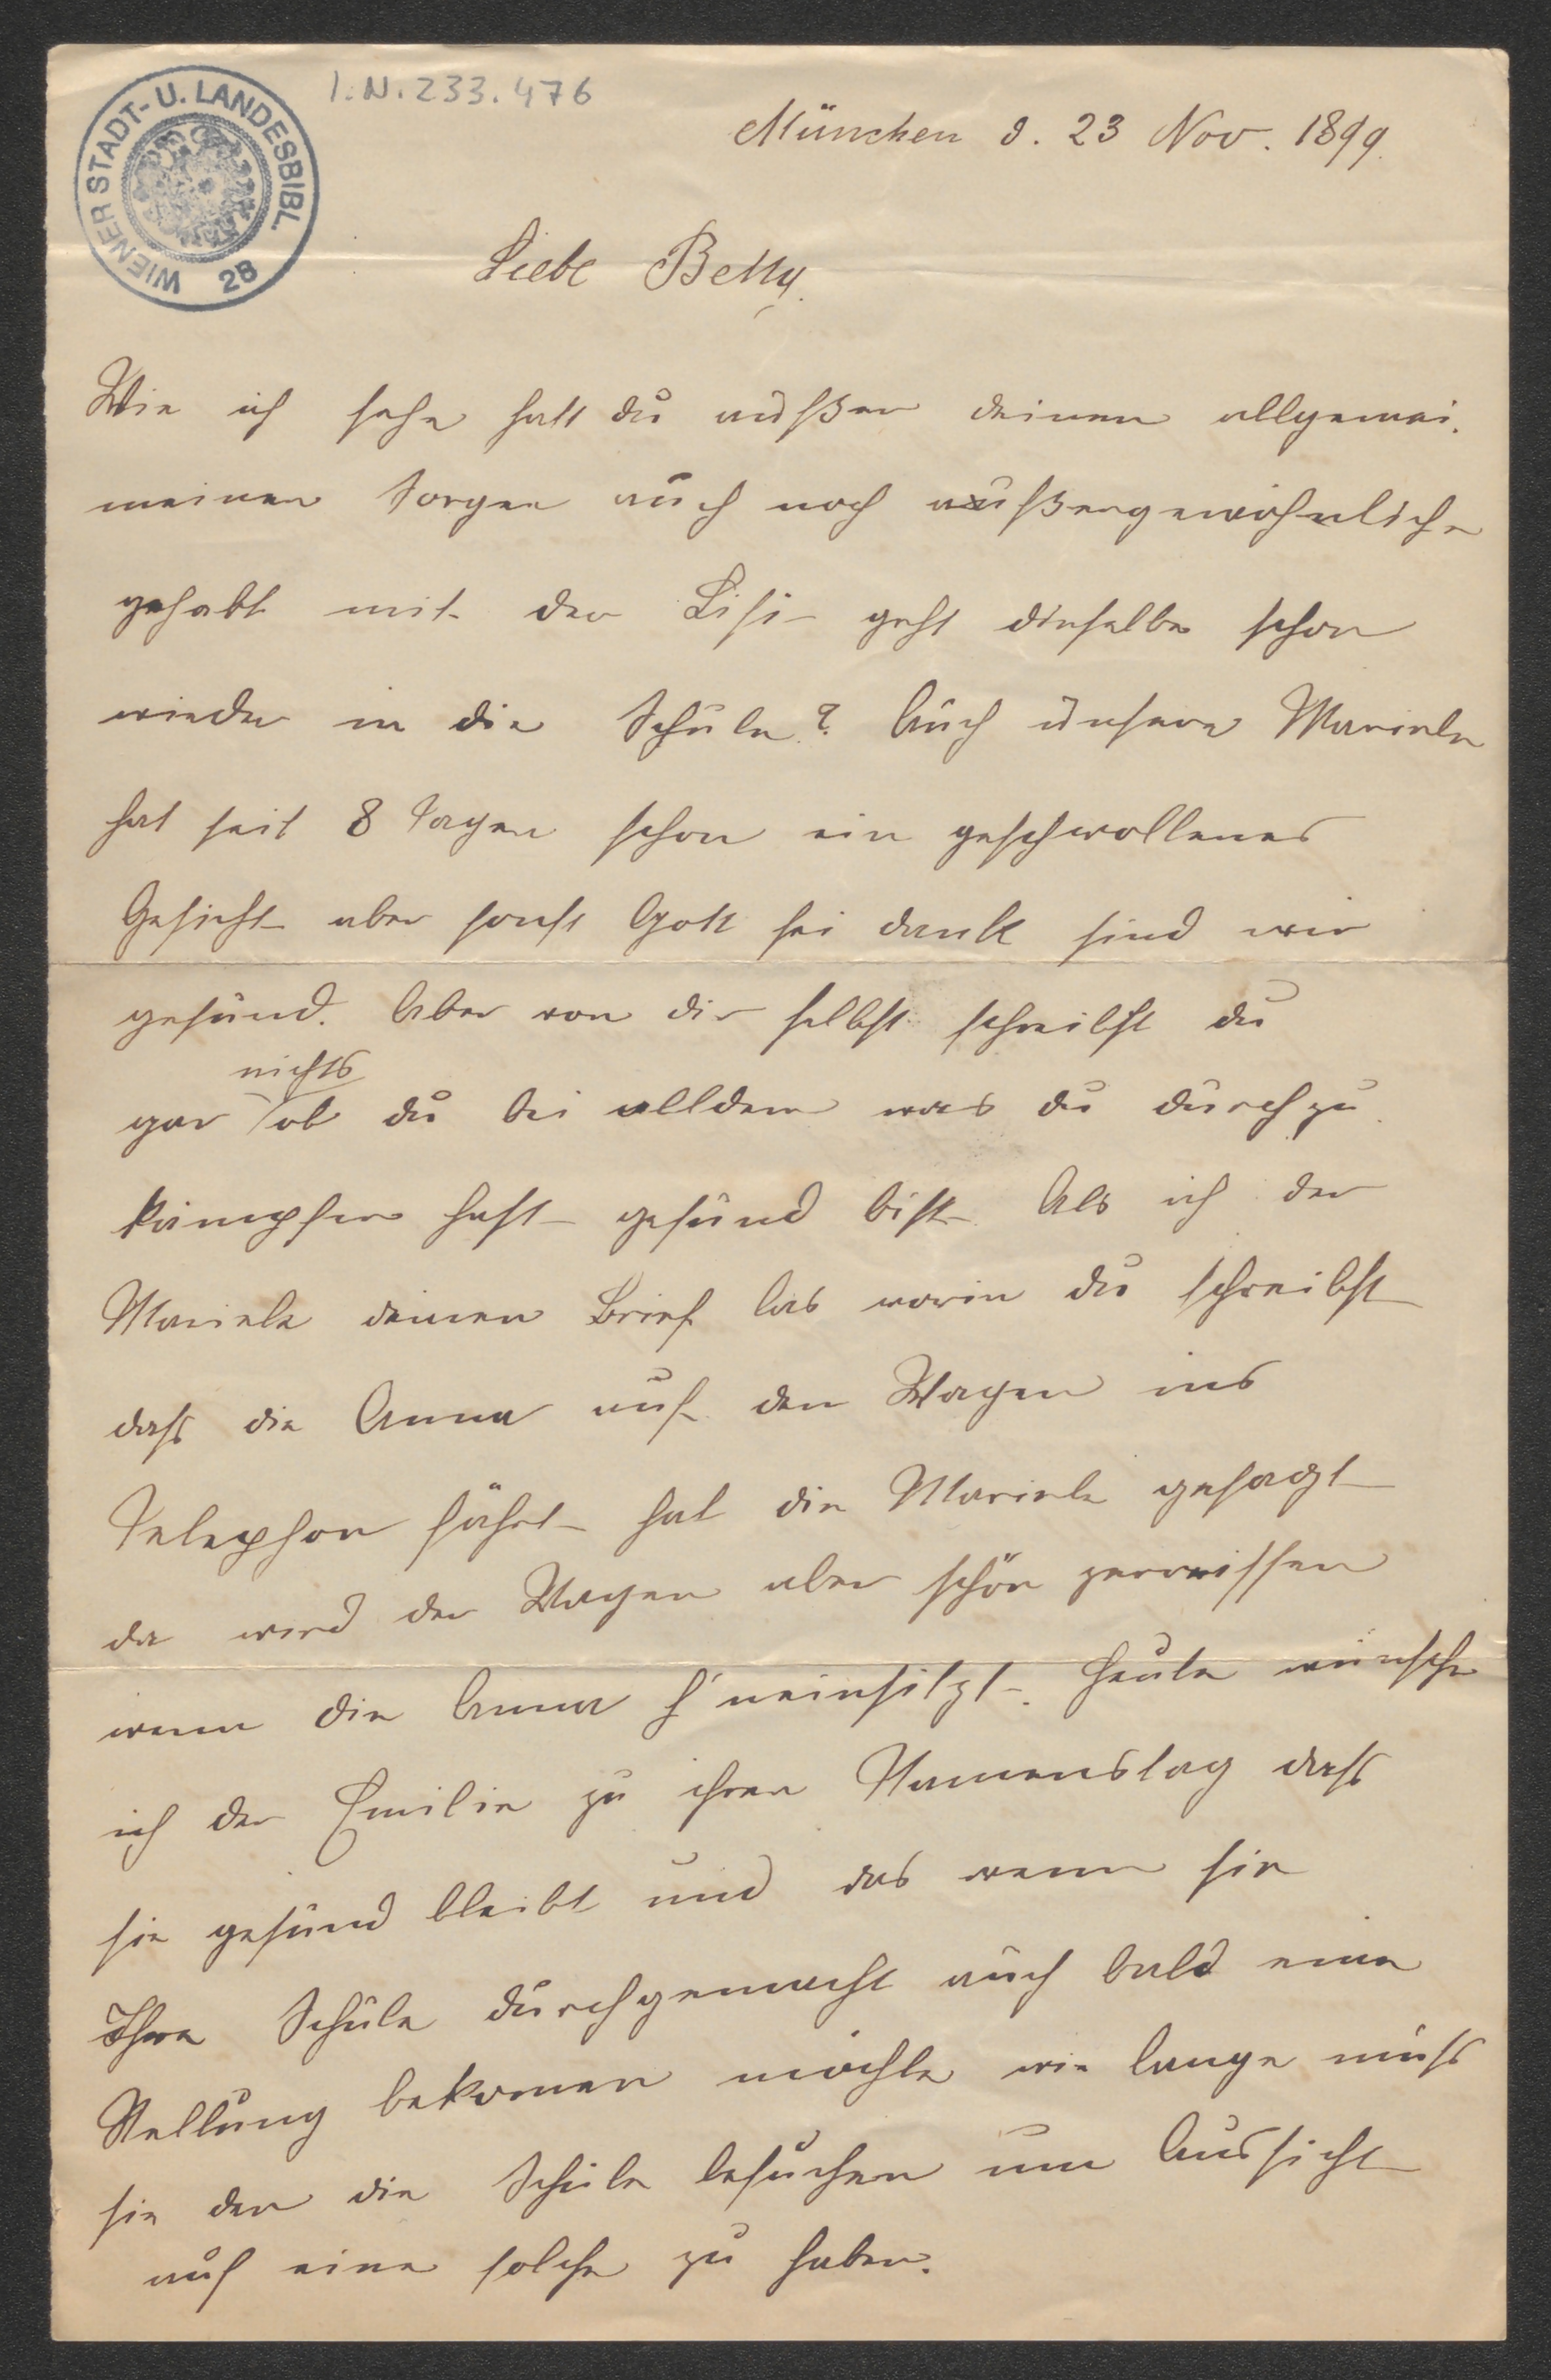 I.N.233.476
WIENER STADT- U. LANDESBIBL. 28
München d. 23 Nov. 1899.
Liebe Betty.
Wie ich sehe hast du außer deinen allgemei.
meinen Sorgen auch noch außergewöhnliche
gehabt mit der Lisi geht dieselbe schon
wieder in die Schule? Auch unsere Mariele
hat seit 8 Tagen schon ein geschwollenes
Gesicht aber sonst Gott sei dank sind wir
gesund. Aber von dir selbst schreibst du
nichts
gar ob du bei alldem was du durchzu
kämpfen hast gesund bist. Als ich der
Mariele deinen Brief las worin du schreibst
dass die Anna auf den Wagen ins
Telephon fährt hat die Mariele gesagt
da wird der Wagen aber schön zerrissen
wenn die Anna h'neinsitzt. Heute wünsche
ich der Emilie zu ihren Namenstag dass
sie gesund bleibt und das wenn sie
Ihre Schule durchgemacht auch bald eine
Stellung bekomen möchte wie lange muss
sie den die Schule besuchen um Aussicht
auf eine solche zu haben.